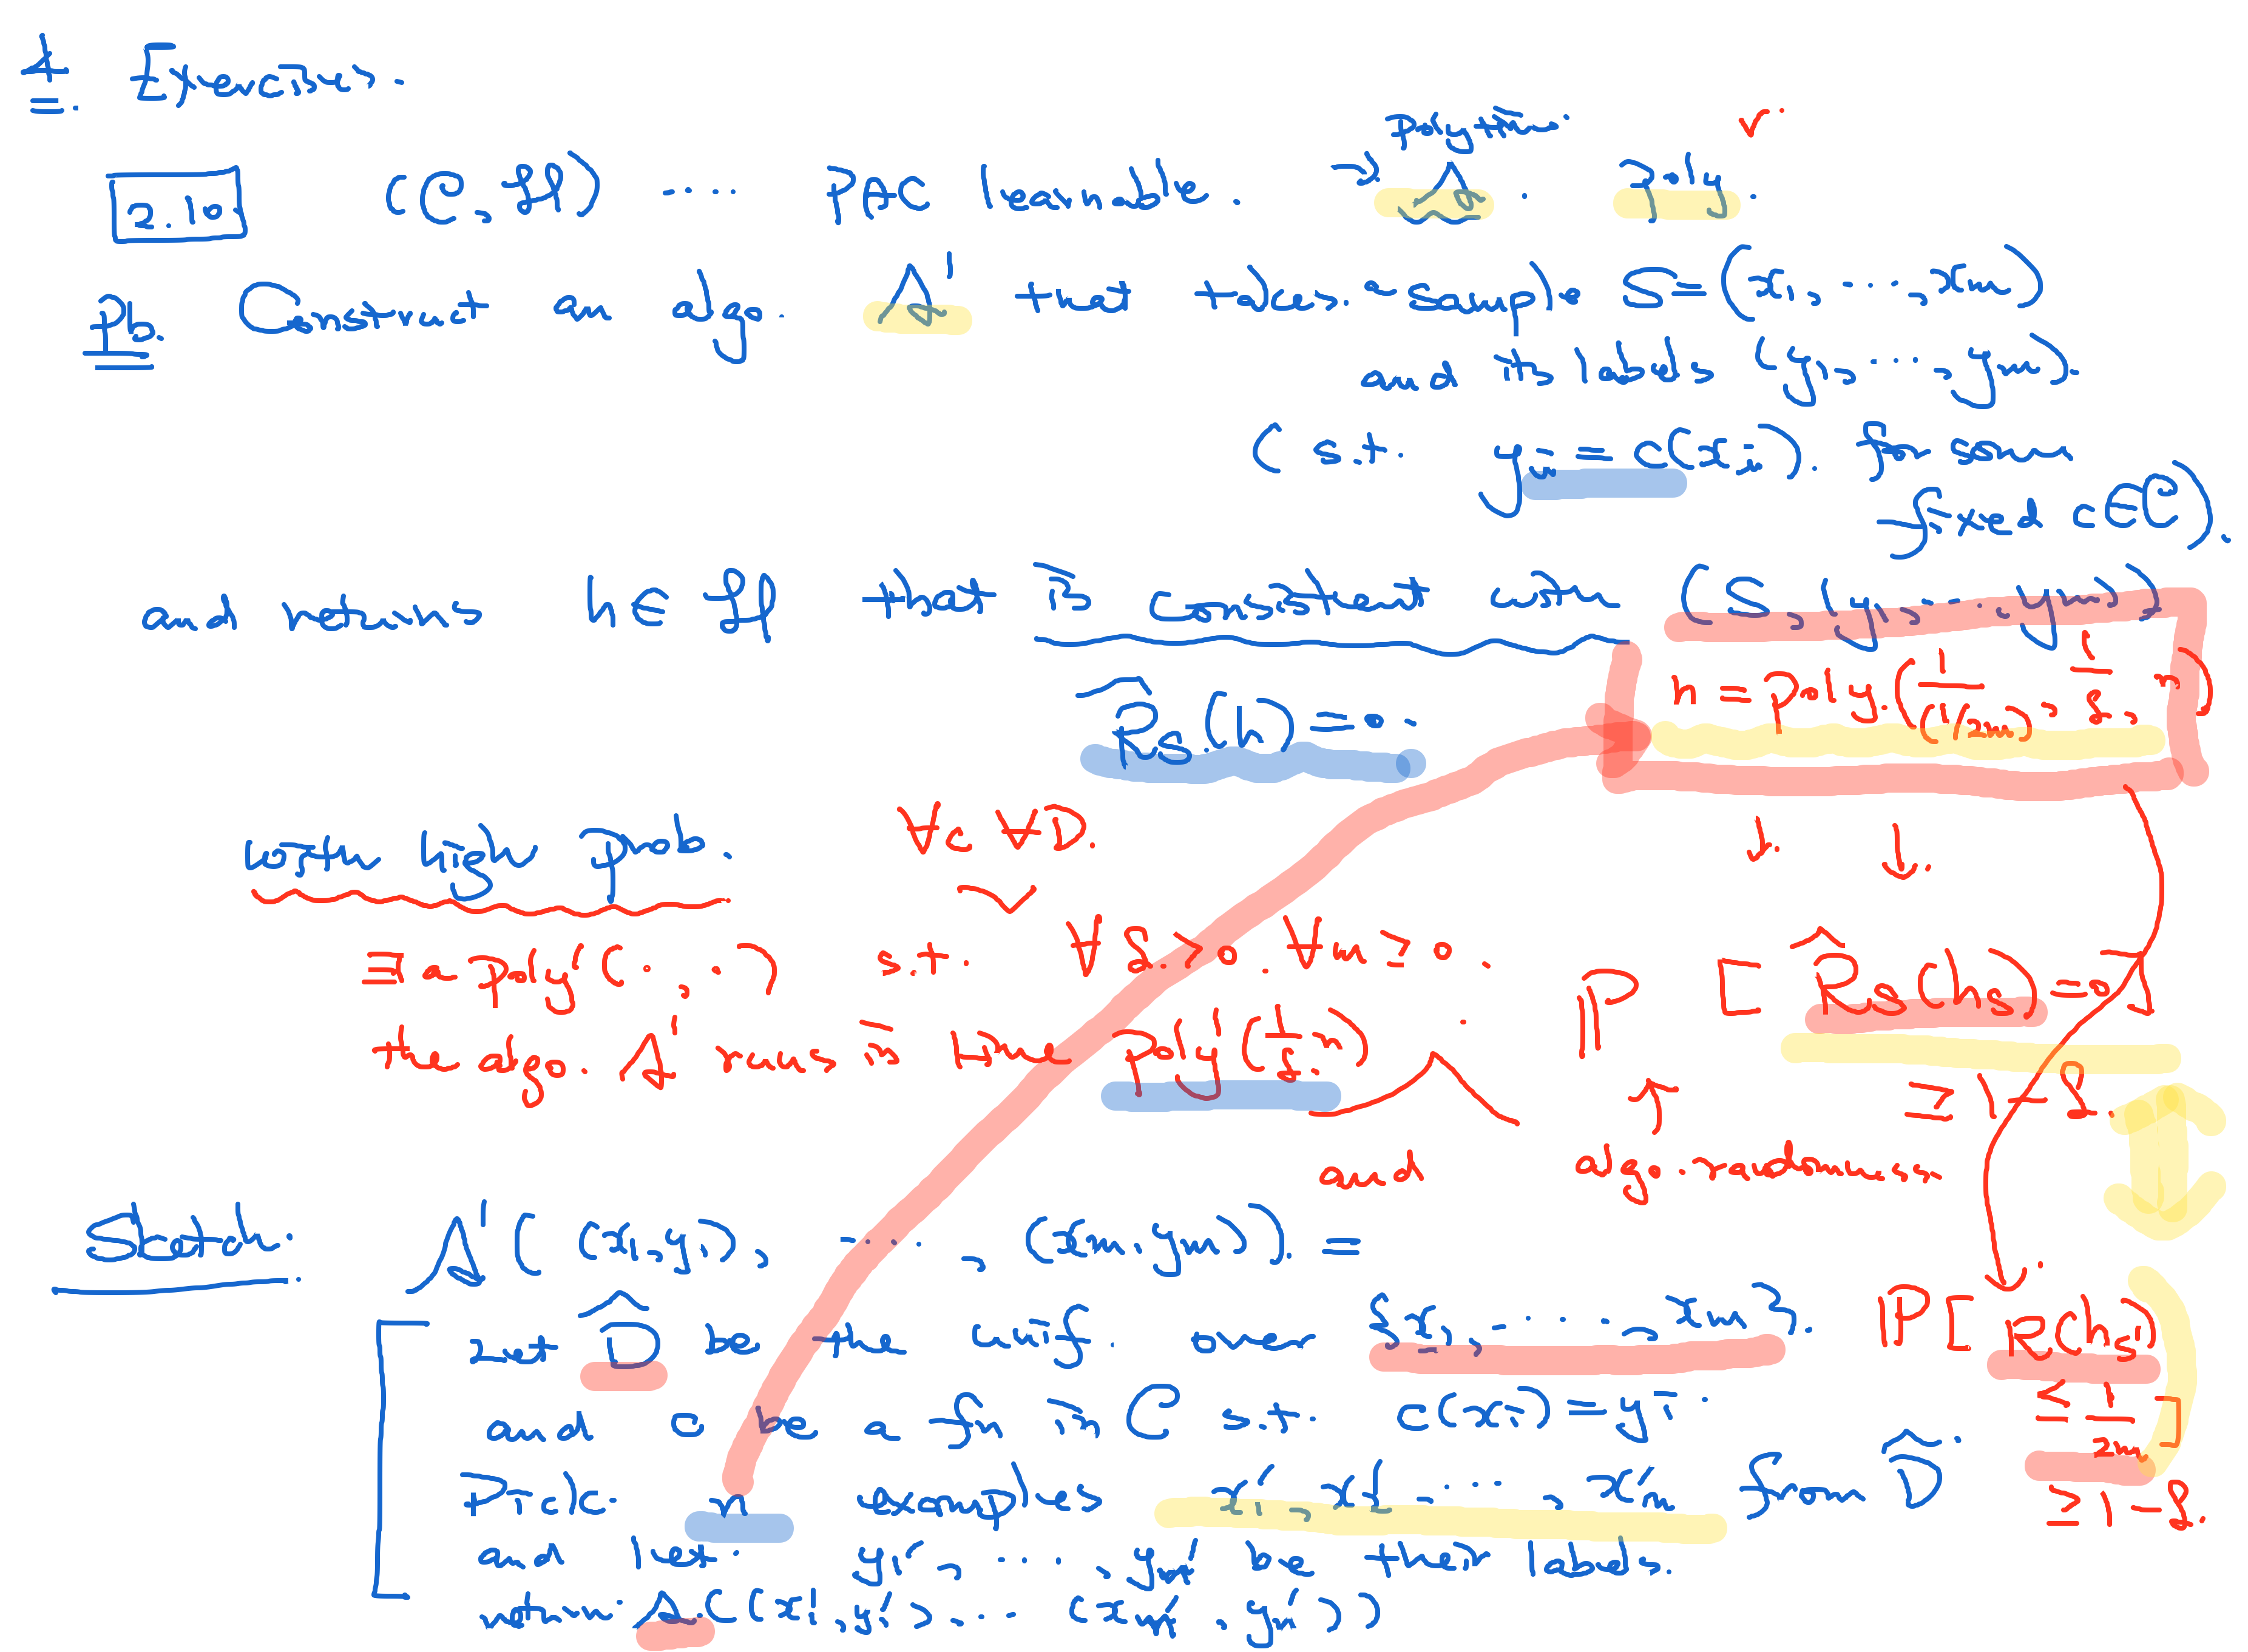 4. Exercises.
2.10 (C, H) .... PAC learnable. ⇒ A. poly.
polytime.
Pb. Construct an algo. A' that takes a sample S = (x1, ...., xm)
and its labels (y1, ...., ym).
(s.t. yi = c(xi). for some
fixed c ∈ C).
and returns h ∈ H that is consistent with (S, (y1, ..., ym))
R̂s(h) = 0. n = poly(1/(1/2m), 1/δ, n)
with high prob. ∀c ∀D.
≡ a poly'(·, ·) s.t. ∀δ > 0. ∀m > 0. P [R̂s(hs) = 0]
the algo. A' runs in time poly'(1/δ, m) ≥ 1 - δ.
and algo. randomness.
Sketch. A'((x1, y1), ...., (xm, ym)). =
Let D̂ be the unif. over {x1, ...., xm}. P[ R(hs')
and c be a fn in C s.t. c(xi) = yi. ≤ 1/2m ]
Pick n examples x1', x2', ..., xn' from D̂. ≥ 1 - δ.
and let y1', ..., yn' be their labels.
return A((x1', y1'), ... (xn', yn'))